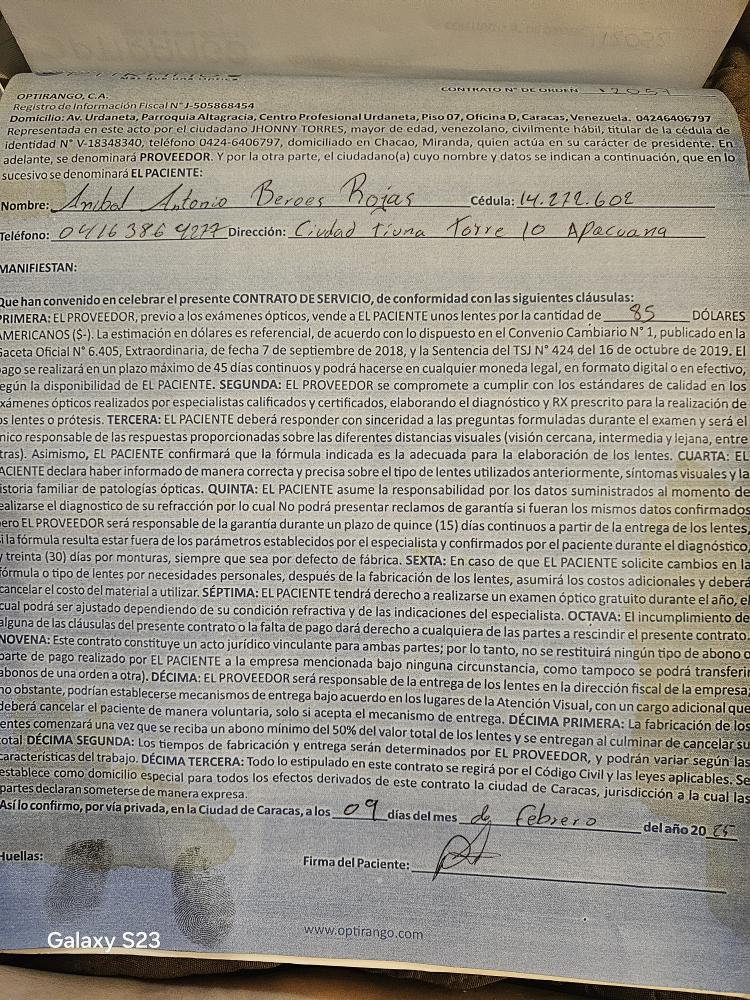 CONTRATO N° DE ORDEN 12057
OPTIRANGO, C.A.
Registro de Información Fiscal N° J-505868454
Domicilio: Av. Urdaneta, Parroquia Altagracia, Centro Profesional Urdaneta, Piso 07, Oficina D, Caracas, Venezuela. 04246406797
Representada en este acto por el ciudadano JHONNY TORRES, mayor de edad, venezolano, civilmente hábil, titular de la cédula de
identidad N° V-18348340, teléfono 0424-6406797, domiciliado en Chacao, Miranda, quien actúa en su carácter de presidente. En
adelante, se denominará PROVEEDOR. Y por la otra parte, el ciudadano(a) cuyo nombre y datos se indican a continuación, que en lo
sucesivo se denominará EL PACIENTE:
Nombre: Anibal Antonio Beroes Rojas Cédula: 14.272.602
Teléfono: 0416 386 4277 Dirección: Ciudad tiuna Torre 10 Apacuana
MANIFIESTAN:
Que han convenido en celebrar el presente CONTRATO DE SERVICIO, de conformidad con las siguientes cláusulas:
PRIMERA: EL PROVEEDOR, previo a los exámenes ópticos, vende a EL PACIENTE unos lentes por la cantidad de 85 DÓLARES
AMERICANOS ($-). La estimación en dólares es referencial, de acuerdo con lo dispuesto en el Convenio Cambiario N° 1, publicado en la
Gaceta Oficial N° 6.405, Extraordinaria, de fecha 7 de septiembre de 2018, y la Sentencia del TSJ N° 424 del 16 de octubre de 2019. El
pago se realizará en un plazo máximo de 45 días continuos y podrá hacerse en cualquier moneda legal, en formato digital o en efectivo,
según la disponibilidad de EL PACIENTE. SEGUNDA: EL PROVEEDOR se compromete a cumplir con los estándares de calidad en los
exámenes ópticos realizados por especialistas calificados y certificados, elaborando el diagnóstico y RX prescrito para la realización de
los lentes o prótesis. TERCERA: EL PACIENTE deberá responder con sinceridad a las preguntas formuladas durante el examen y será el
único responsable de las respuestas proporcionadas sobre las diferentes distancias visuales (visión cercana, intermedia y lejana, entre
otras). Asimismo, EL PACIENTE confirmará que la fórmula indicada es la adecuada para la elaboración de los lentes. CUARTA: EL
PACIENTE declara haber informado de manera correcta y precisa sobre el tipo de lentes utilizados anteriormente, síntomas visuales y la
historia familiar de patologías ópticas. QUINTA: EL PACIENTE asume la responsabilidad por los datos suministrados al momento de
realizarse el diagnostico de su refracción por lo cual No podrá presentar reclamos de garantía si fueran los mismos datos confirmados
pero EL PROVEEDOR será responsable de la garantía durante un plazo de quince (15) días continuos a partir de la entrega de los lentes,
si la fórmula resulta estar fuera de los parámetros establecidos por el especialista y confirmados por el paciente durante el diagnóstico,
y treinta (30) días por monturas, siempre que sea por defecto de fábrica. SEXTA: En caso de que EL PACIENTE solicite cambios en la
fórmula o tipo de lentes por necesidades personales, después de la fabricación de los lentes, asumirá los costos adicionales y deberá
cancelar el costo del material a utilizar. SÉPTIMA: EL PACIENTE tendrá derecho a realizarse un examen óptico gratuito durante el año, el
cual podrá ser ajustado dependiendo de su condición refractiva y de las indicaciones del especialista. OCTAVA: El incumplimiento de
alguna de las cláusulas del presente contrato o la falta de pago dará derecho a cualquiera de las partes a rescindir el presente contrato.
NOVENA: Este contrato constituye un acto jurídico vinculante para ambas partes; por lo tanto, no se restituirá ningún tipo de abono o
parte de pago realizado por EL PACIENTE a la empresa mencionada bajo ninguna circunstancia, como tampoco se podrá transferir
abonos de una orden a otra). DÉCIMA: EL PROVEEDOR será responsable de la entrega de los lentes en la dirección fiscal de la empresa,
no obstante, podrían establecerse mecanismos de entrega bajo acuerdo en los lugares de la Atención Visual, con un cargo adicional que
deberá cancelar el paciente de manera voluntaria, solo si acepta el mecanismo de entrega. DÉCIMA PRIMERA: La fabricación de los
lentes comenzará una vez que se reciba un abono mínimo del 50% del valor total de los lentes y se entregan al culminar de cancelar su
total. DÉCIMA SEGUNDA: Los tiempos de fabricación y entrega serán determinados por EL PROVEEDOR, y podrán variar según las
características del trabajo. DÉCIMA TERCERA: Todo lo estipulado en este contrato se regirá por el Código Civil y las leyes aplicables. Se
establece como domicilio especial para todos los efectos derivados de este contrato la ciudad de Caracas, jurisdicción a la cual las
partes declaran someterse de manera expresa.
Así lo confirmo, por vía privada, en la Ciudad de Caracas, a los 09 días del mes de febrero del año 2025
Huellas:
Firma del Paciente:
www.optirango.com
Galaxy S23